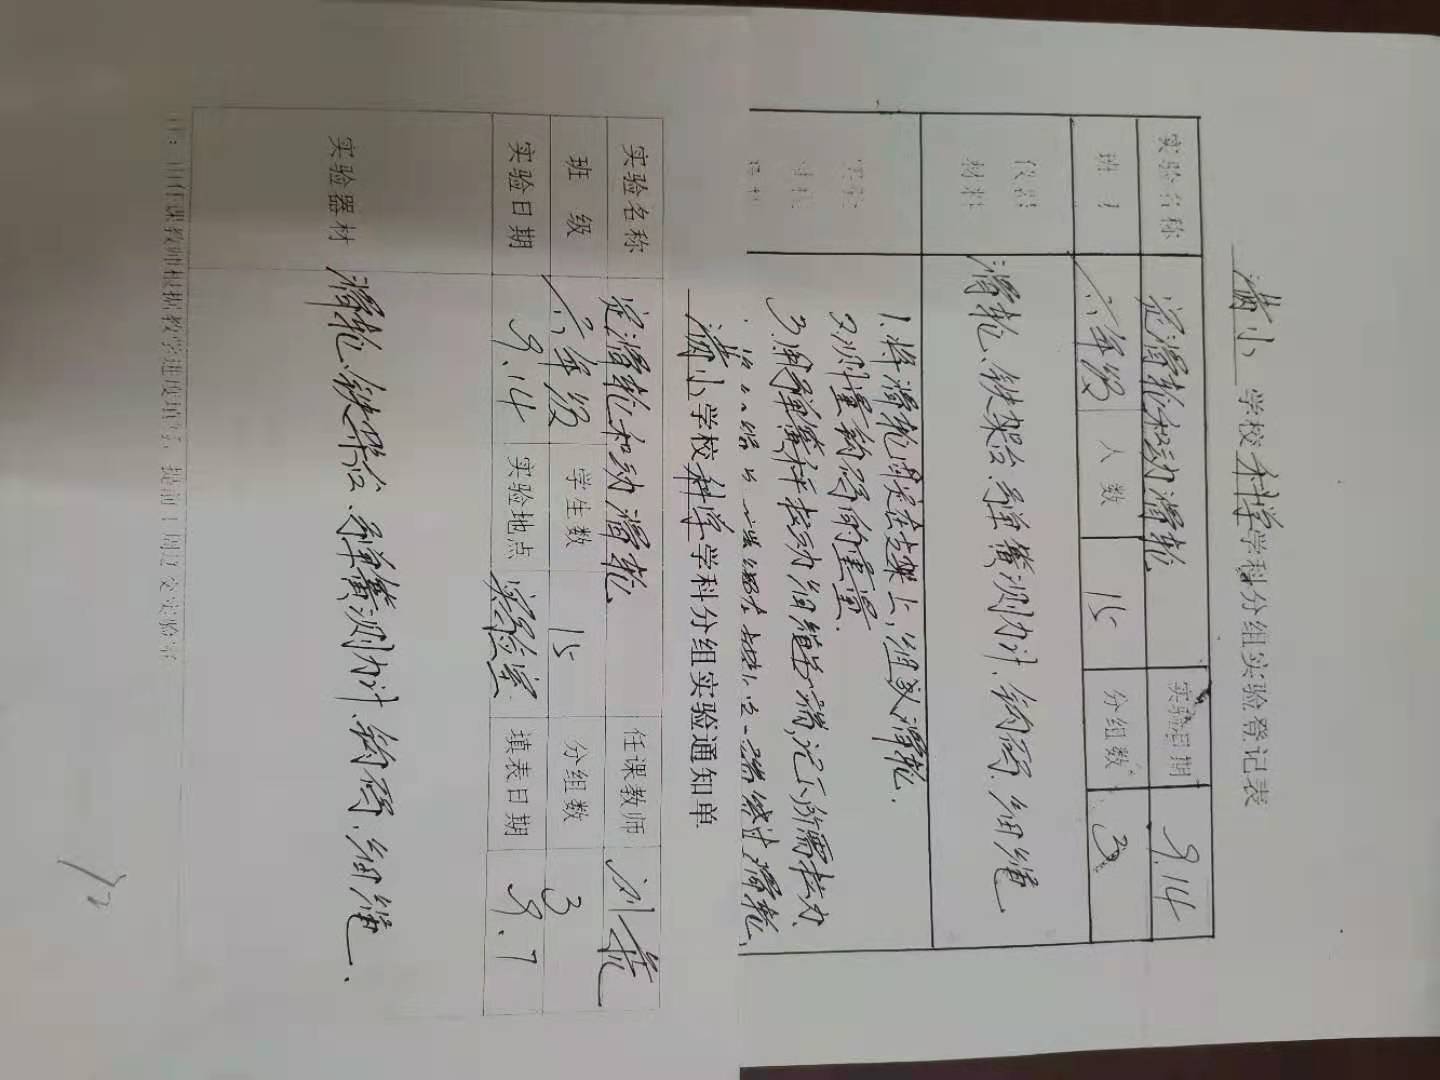 满小 学校科学学科分组实验登记表
实验名称 定滑轮和动滑轮 实验日期 9.14
班 级 六年级 人数 15 分组数 3
仪器
材料 滑轮、铁架台、弹簧测力计、钩码、细绳
1.将滑轮固定在支架上,组成定滑轮.
2.测量钩码的重量.
3.用弹簧秤拉动细绳另一端,记下所需拉力
满小学校科学学科分组实验通知单
实验名称 定滑轮和动滑轮 任课教师 刘
班 级 六年级 学生数 15 分组数 3
实验日期 9.14 实验地点 实验室 填表日期 9.7
实验器材 滑轮、铁架台、弹簧测力计、钩码、细绳.
注:由任课教师根据教学进度填写,提前1周交实验室